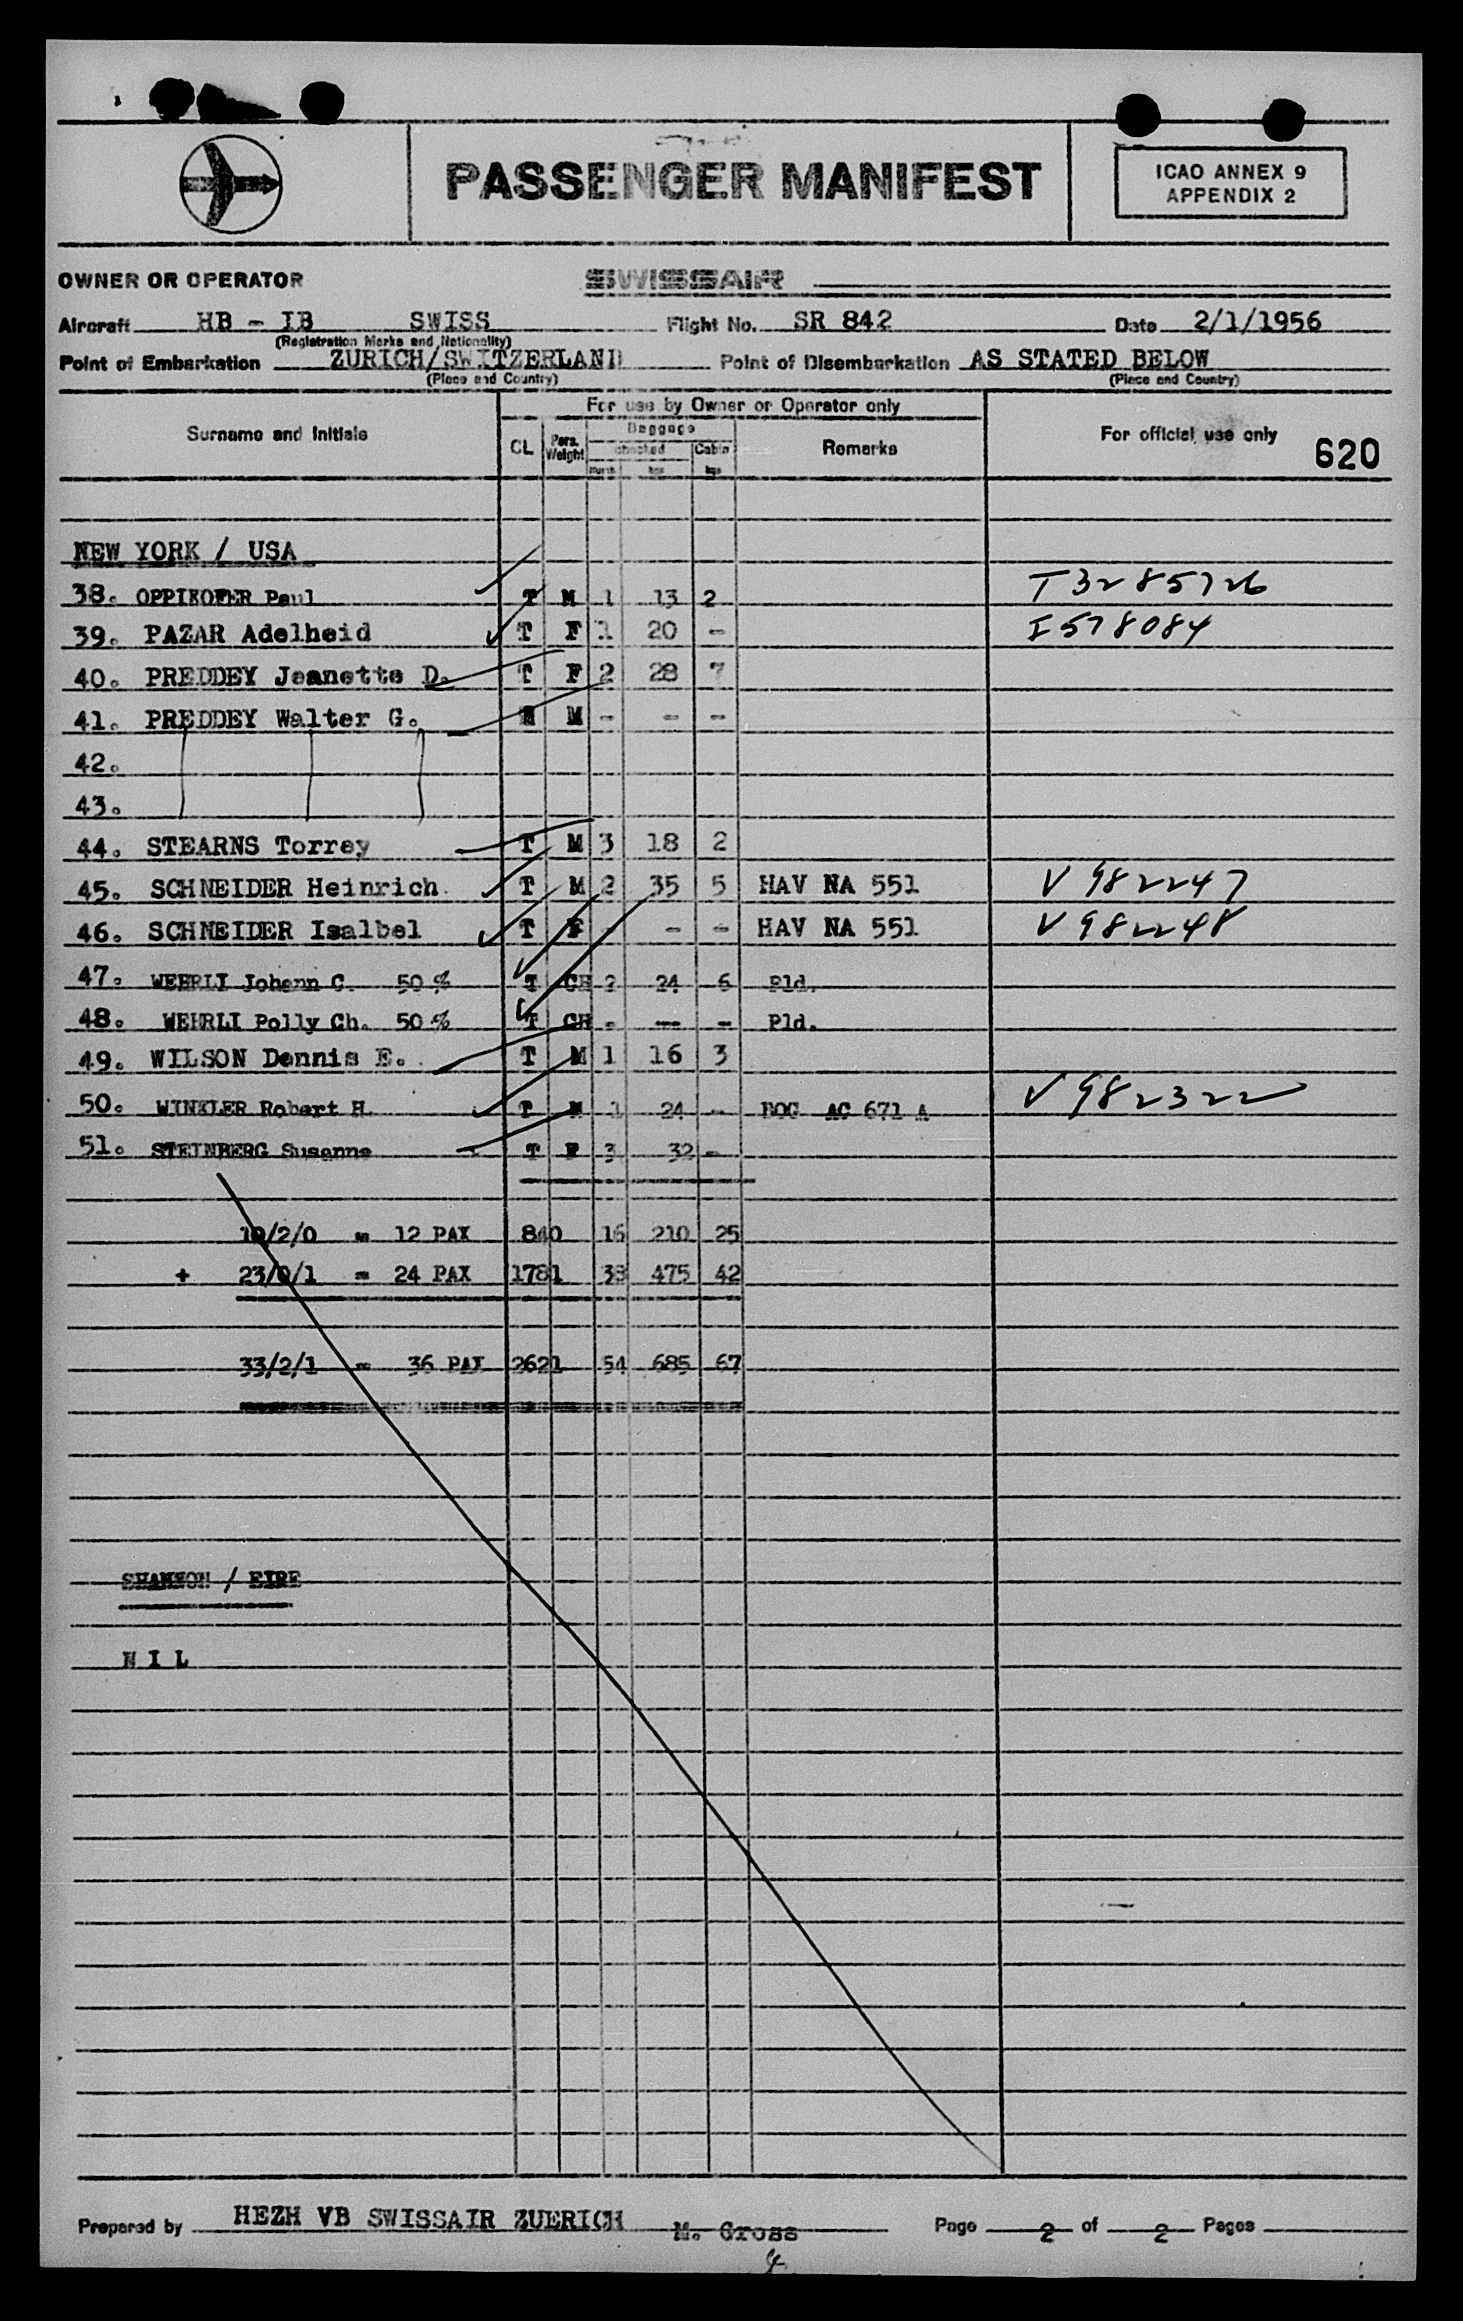 PASSENGER MANIFEST
ICAO ANNEX 9
APPENDIX 2
OWNER OR OPERATOR SWISSAIR
Aircraft HB - IB SWISS Flight No. SR 842 Date 2/1/1956
(Registration Marks and Nationality)
Point of Embarkation ZURICH/SWITZERLAND Point of Disembarkation AS STATED BELOW
(Place and Country) (Place and Country)
For use by Owner or Operator only
Surname and Initials CL Pers. Weight Baggage checked Cabin Remarks For official use only 620
kgs kgs
NEW YORK / USA
38. OPPIKOFER Paul T M 1 13 2 T 3285726
39. PAZAR Adelheid T F 1 20 - I 578084
40. PREDDEY Jeanette D. T F 2 28 7
41. PREDDEY Walter G. M - - -
42.
43.
44. STEARNS Torrey T M 3 18 2
45. SCHNEIDER Heinrich T M 2 35 5 HAV NA 551 V 982247
46. SCHNEIDER Isalbel T F - - - HAV NA 551 V 982248
47. WEHRLI Johann C. 50 % T CH 2 24 6 Pld.
48. WEHRLI Polly Ch. 50 % T CH - -- - Pld.
49. WILSON Dennis E. T M 1 16 3
50. WINKLER Robert H. T M 1 24 - BOG AC 671 A V 982322
51. STEINBERG Susanne T F 3 32 -
10/2/0 = 12 PAX 840 16 210 25
+ 23/0/1 = 24 PAX 1781 38 475 42
33/2/1 = 36 PAX 2621 54 685 67
SHANNON / EIRE
N I L
Prepared by HEZH VB SWISSAIR ZUERICH M. Gross Page 2 of 2 Pages